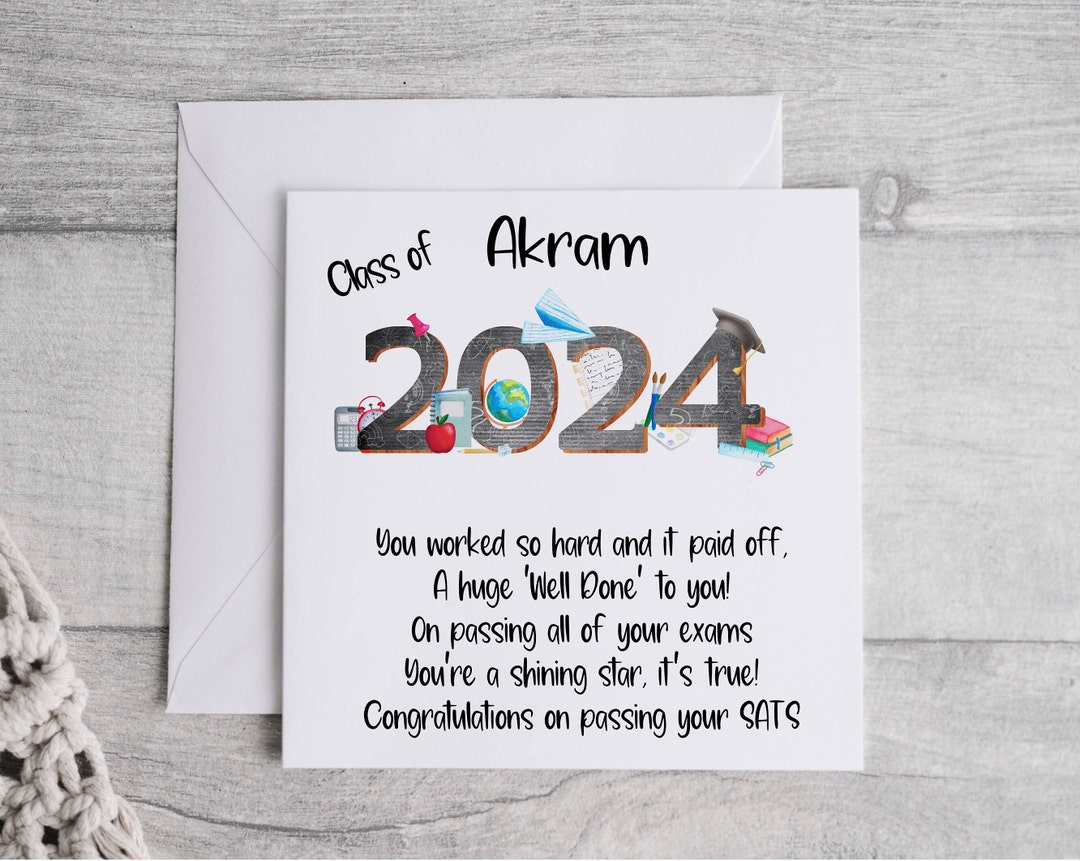 Class of
Akram
2024
You worked so hard and it paid off,
A huge 'Well Done' to you!
On passing all of your exams
You're a shining star, it's true!
Congratulations on passing your SATS